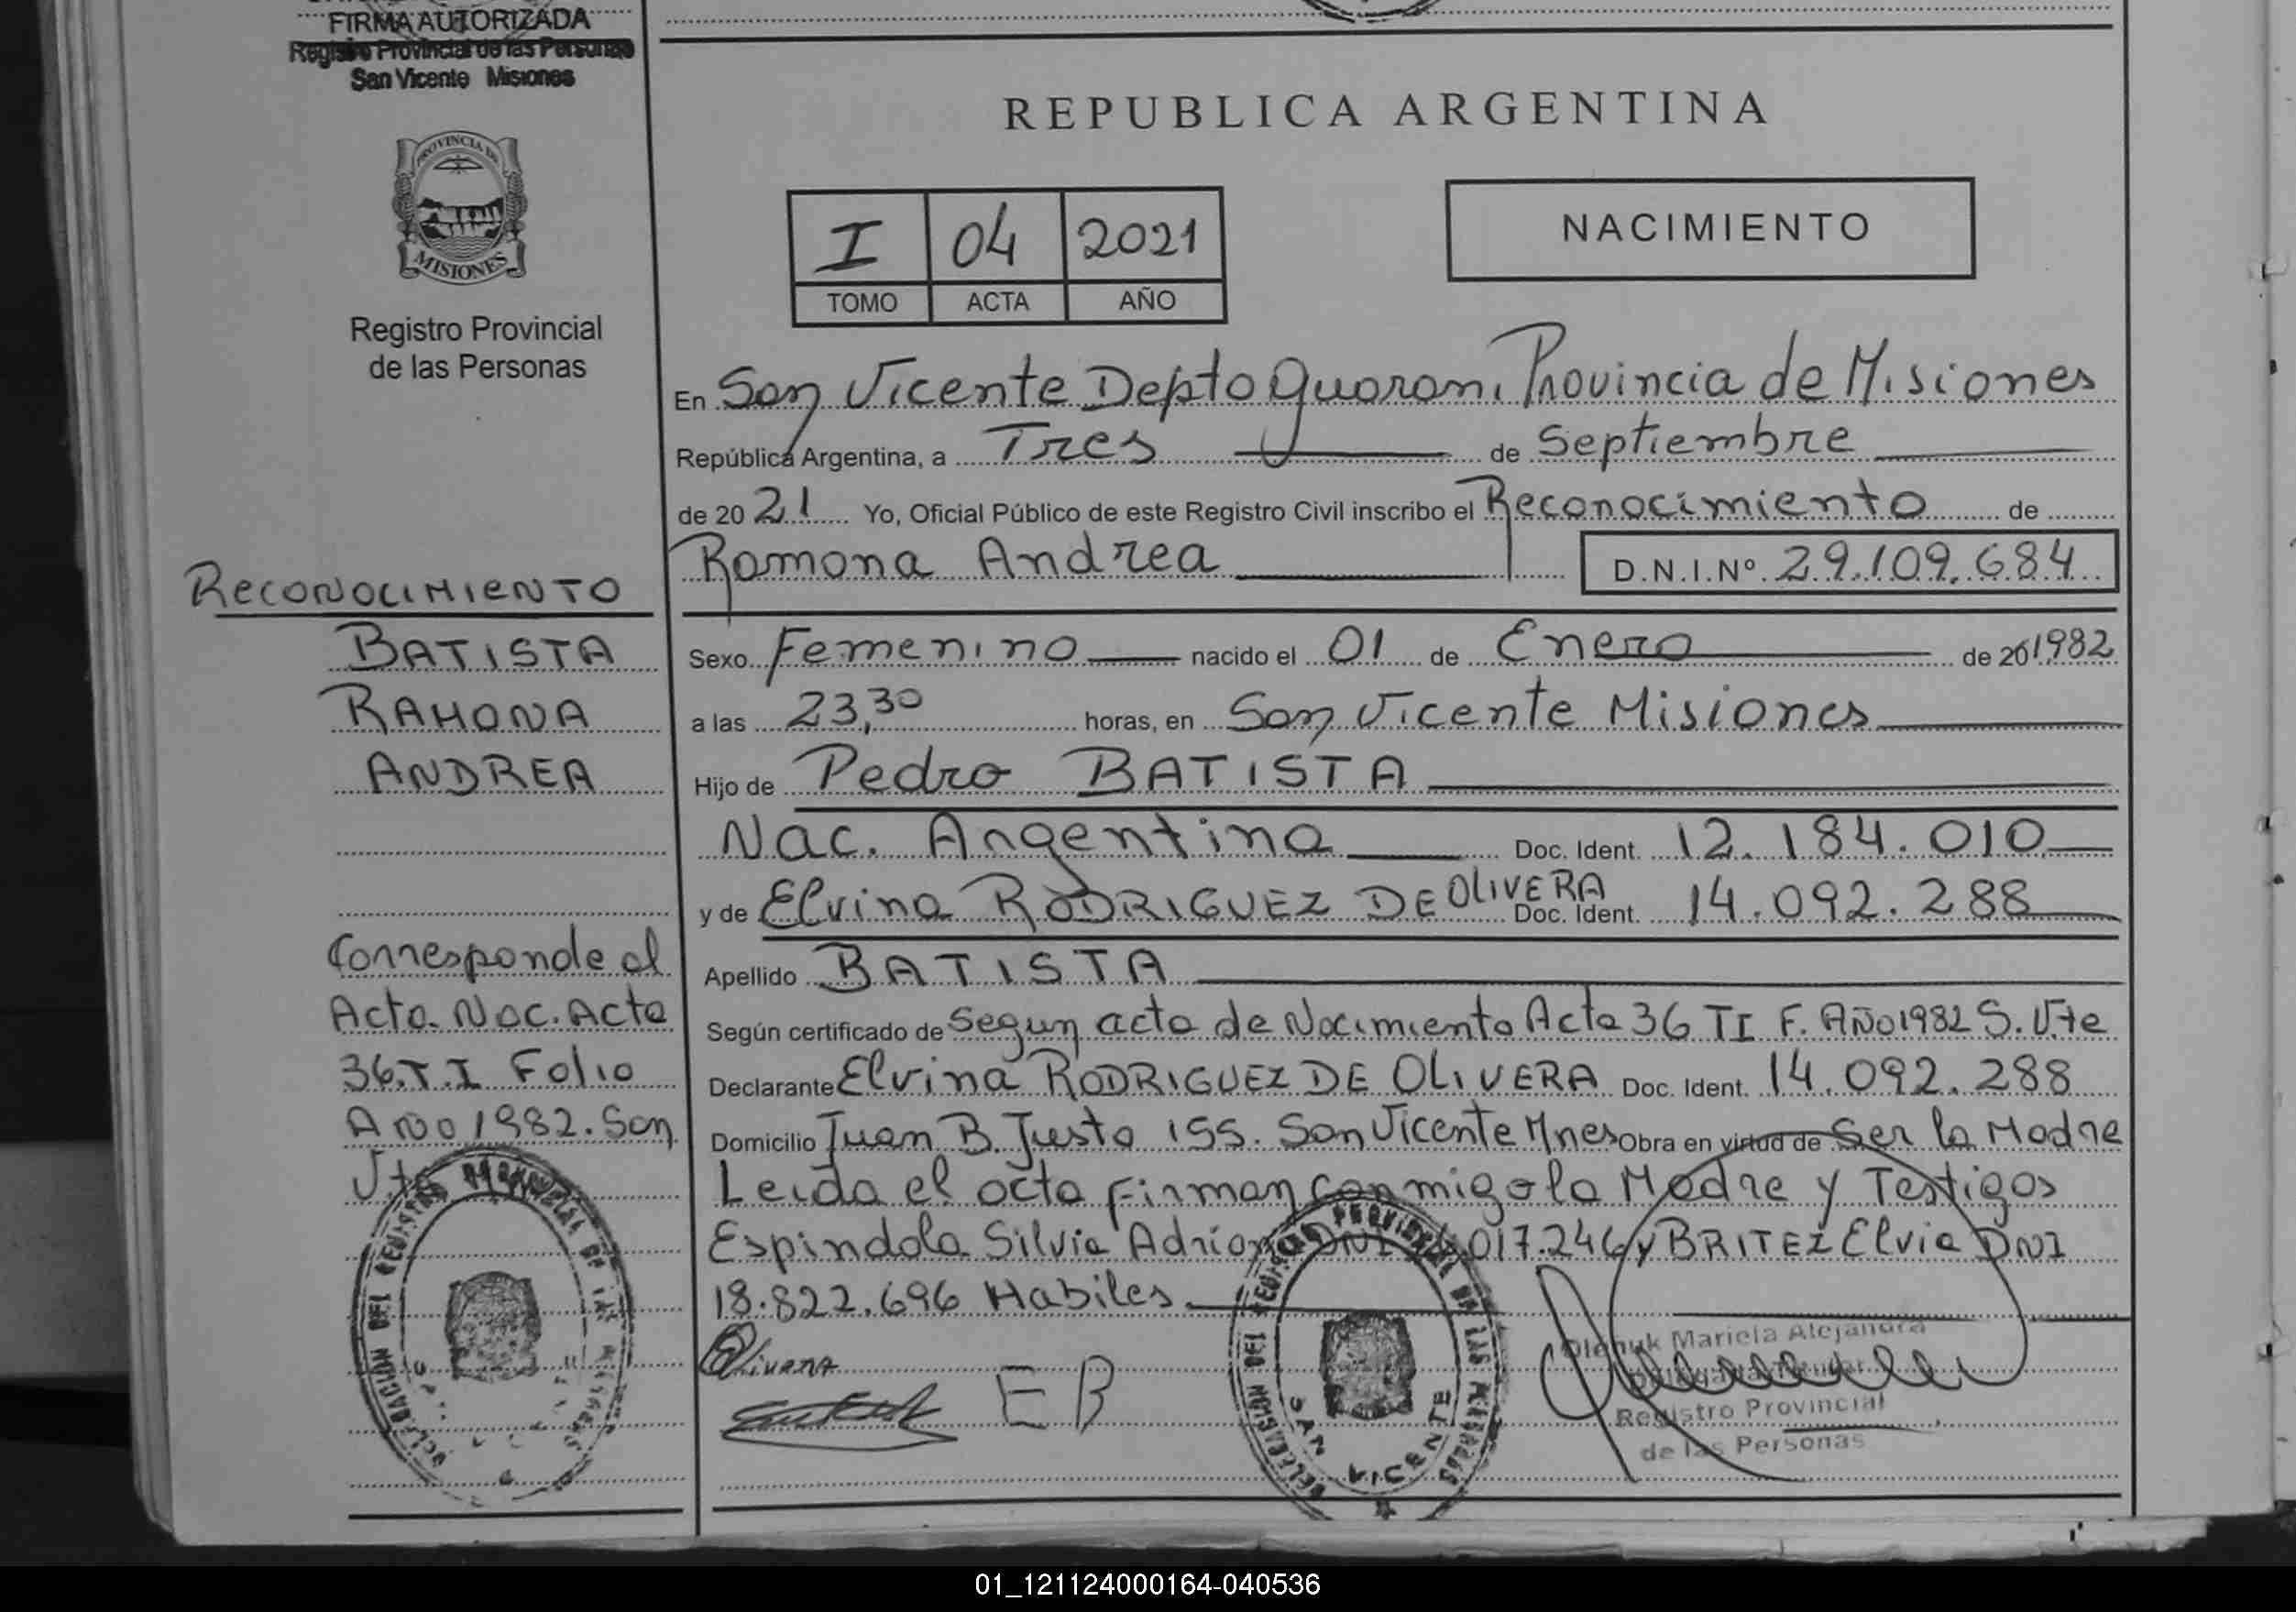 FIRMA AUTORIZADA
Registro Provincial de las Personas
San Vicente Misiones
PROVINCIA DE
MISIONES
Registro Provincial
de las Personas
RECONOCIMIENTO
BATISTA
RAMONA
ANDREA
Corresponde al
Acta Nac. Acta
36.T.I Folio
Año 1982. San
Vte
REPUBLICA ARGENTINA
I 04 2021
TOMO ACTA AÑO
NACIMIENTO
En San Vicente Depto Guarani Provincia de Misiones
República Argentina, a Tres de Septiembre
de 2021 Yo, Oficial Público de este Registro Civil inscribo el Reconocimiento de
Ramona Andrea D.N.I.Nº 29.109.684
Sexo Femenino nacido el 01 de Enero de 20 1982
a las 23,30 horas, en San Vicente Misiones
Hijo de Pedro BATISTA
Nac. Argentina Doc. Ident. 12.184.010
y de Elvina RODRIGUEZ DE OLIVERA Doc. Ident. 14.092.288
Apellido BATISTA
Según certificado de Segun acta de Nacimiento Acta 36 TI F. Año 1982 S. Vte
Declarante Elvina RODRIGUEZ DE OLIVERA Doc. Ident. 14.092.288
Domicilio Juan B. Justo 155. San Vicente Mnes Obra en virtud de Ser la Madre
Leida el acta firman conmigo la Madre y Testigos
Espindola Silvia Adriana DNI 017.246 y BRITEZ Elvia DNI
18.822.696 Habiles
Olivera
E B
DELEGACION DEL REGISTRO PROVINCIAL DE LAS PERSONAS
SAN VICENTE
Mariela Alejandra
Registro Provincial
de las Personas
01_121124000164-040536